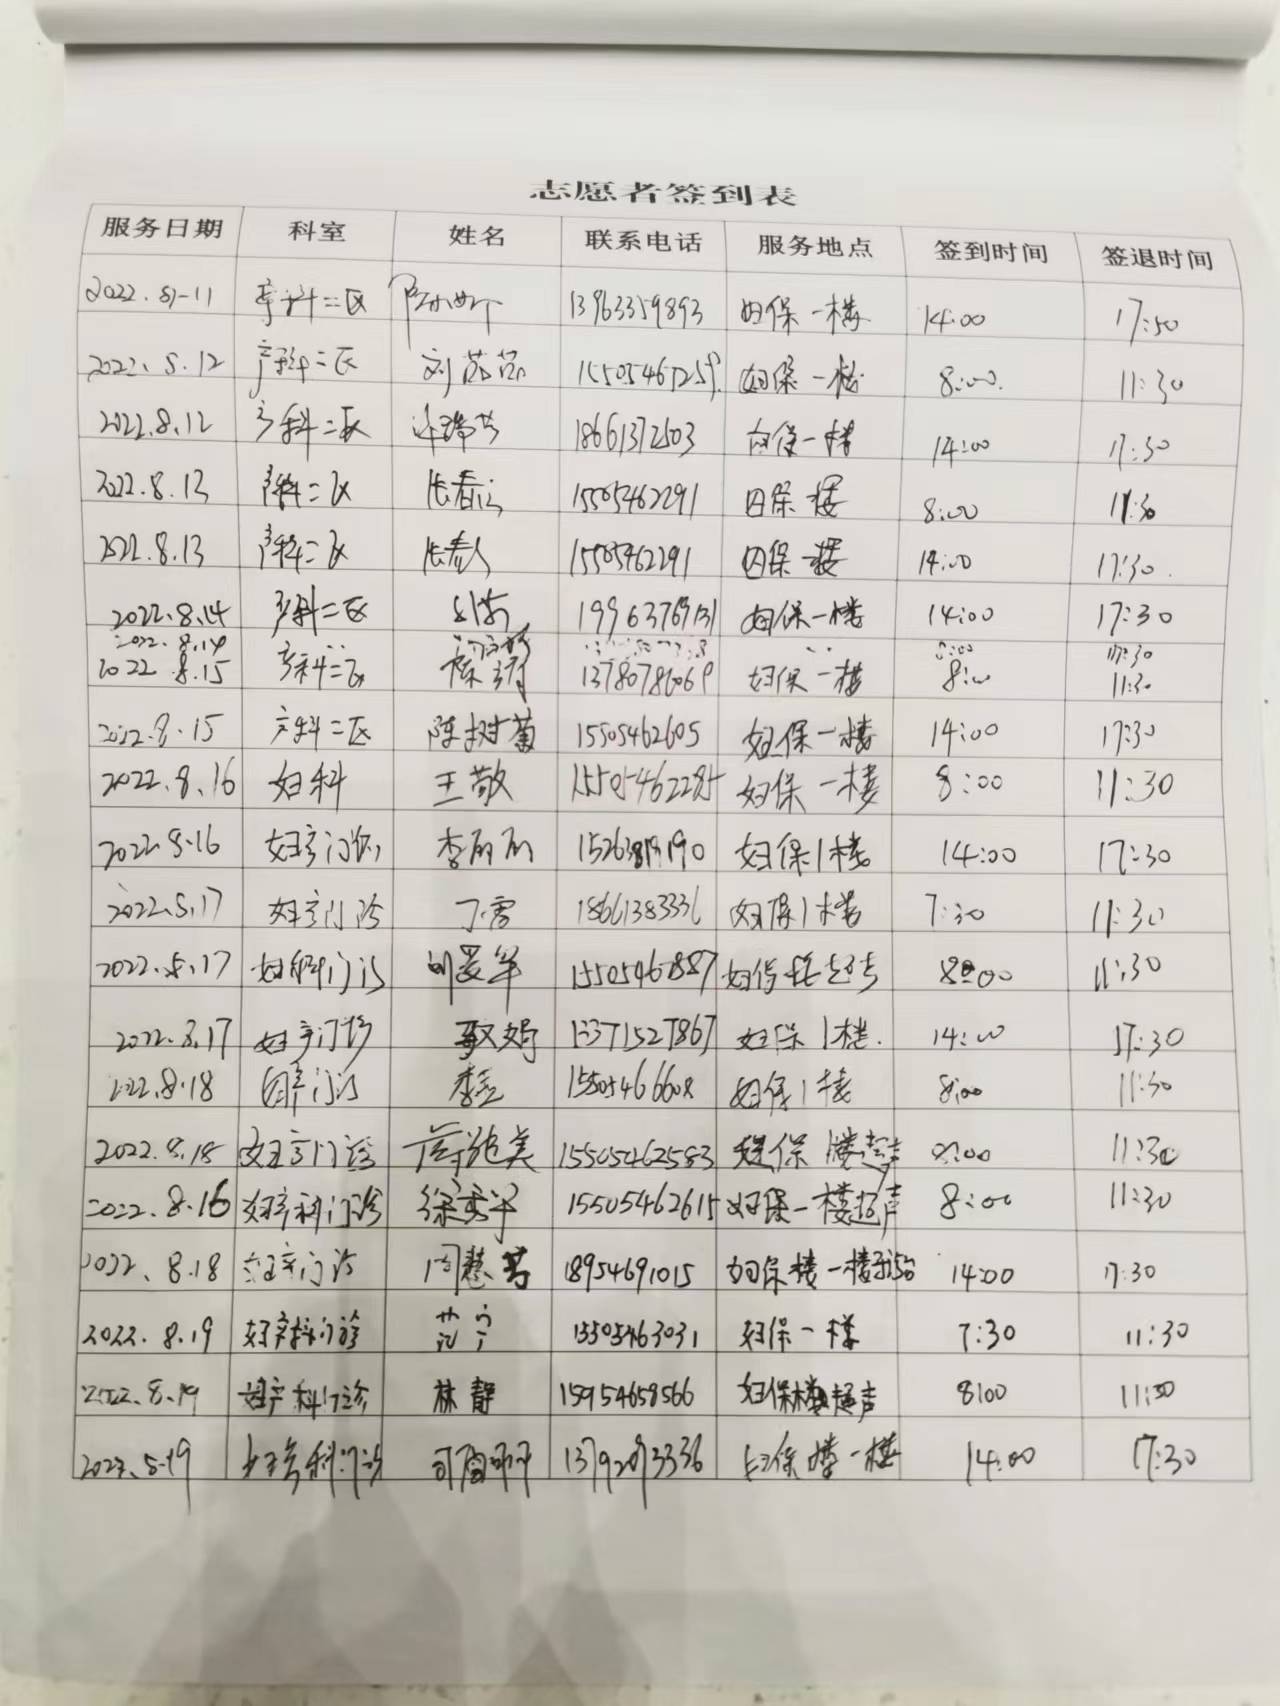 志愿者签到表
服务日期 科室 姓名 联系电话 服务地点 签到时间 签退时间
2022.8.11 产科二区 13963359893 妇保一楼 14:00 17:30
2022.8.12 产科二区 刘 妇保一楼 8:00 11:30
2022.8.12 产科二区 18661372503 妇保一楼 14:00 17:30
2022.8.13 产科二区 张春 15505462291 妇保一楼 8:00 11:30
2022.8.13 产科二区 张春 15505462291 妇保一楼 14:00 17:30
2022.8.14 产科二区 妇保一楼 14:00 17:30
2022.8.14 8:00 17:30
2022.8.15 产科二区 陈 13780786069 妇保一楼 8:00 11:30
2022.8.15 产科二区 陈树菊 15505462605 妇保一楼 14:00 17:30
2022.8.16 妇科 王敬 15505462285 妇保一楼 8:00 11:30
2022.8.16 妇产门诊 李丽丽 妇保1楼 14:00 17:30
2022.8.17 妇产门诊 丁雪 18661383336 妇保1楼 7:30 11:30
2022.8.17 妇科门诊 妇保 8:00 11:30
2022.8.17 妇产门诊 敬娟 13371527867 妇保1楼. 14:00 17:30
2022.8.18 妇产门诊 15505466608 妇保1楼 8:00 11:30
2022.8.18 妇产门诊 美 15505462583 妇保1楼超声 8:00 11:30
2022.8.16 妇产科门诊 徐秀平 15505462615 妇保一楼超声 8:00 11:30
2022.8.18 妇产门诊 周慧芳 18954691015 妇保楼一楼 14:00 17:30
2022.8.19 妇产科门诊 范宁 15505463031 妇保一楼 7:30 11:30
2022.8.19 妇产科门诊 林静 15954658566 妇保楼超声 8:00 11:30
2022.8.19 妇产科门诊 13792093336 妇保楼一楼 14:00 17:30